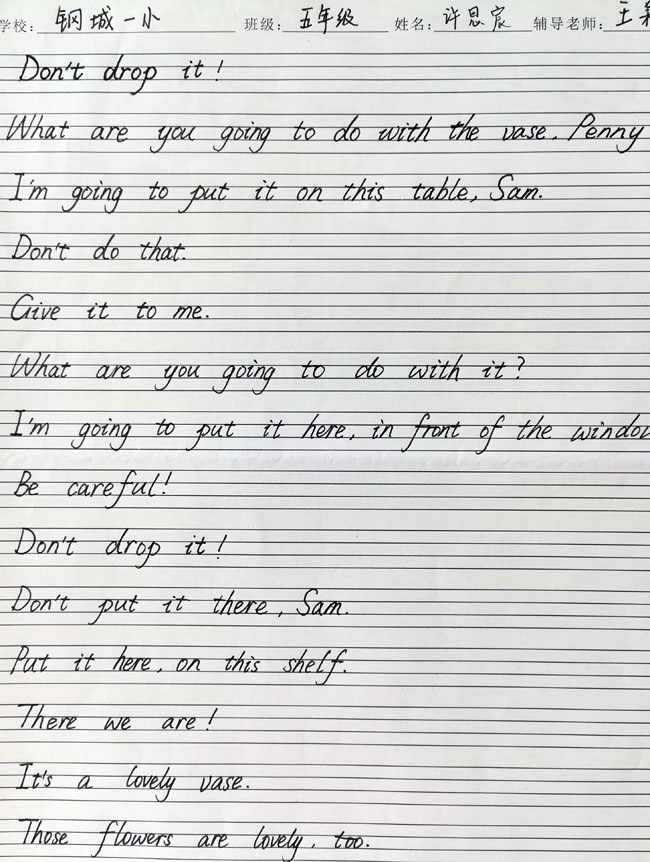 学校: 钢城一小 班级: 五年级 姓名: 许思宸 辅导老师: 王
Don't drop it!
What are you going to do with the vase. Penny
I'm going to put it on this table, Sam.
Don't do that.
Give it to me.
What are you going to do with it?
I'm going to put it here, in front of the window
Be careful!
Don't drop it!
Don't put it there, Sam.
Put it here, on this shelf.
There we are!
It's a lovely vase.
Those flowers are lovely, too.